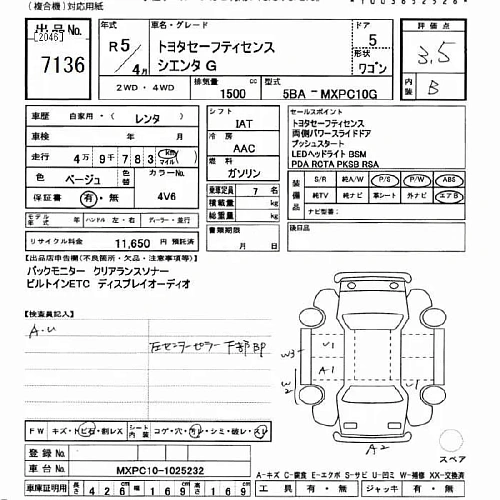 (複合機)対応用紙
出品No. 年式 車名・グレード ドア 評価点
[2046] R5 トヨタセーフティセンス 5 3.5
7136 4月 シエンタ G 形状 ワゴン
2WD・4WD 排気量 1500 cc 型式 5BA-MXPC10G 内装 B
車歴 自家用・(レンタ) シフト IAT セールスポイント
車検 年 月 冷房 AAC トヨタセーフティセンス
走行 4万9千783 km マイル 両側パワースライドドア
色 ベージュ 色替 カラーNo. 4V6 燃料 ガソリン プッシュスタート
LEDヘッドライト BSM
PDA RCTA PKSB RSA
保証書 有・無 乗車定員 7 名
積載量 kg
総重量 kg
装備品 S/R 純A/W P/S P/W ABS
純TV 純ナビ 革シート 外ナビ エアB
ナビ型番:
モデル年式 年 ハンドル 左・右 ディーラー・並行
書類期限 年 月 日
後日品
リサイクル料金 11,650 円 預託済
【出品店申告欄(不良箇所・欠品・注意事項等)】
バックモニター クリアランスソナー
ビルトインETC ディスプレイオーディオ
【検査員記入】
A.U
右センターピラー下部凹
W3 U1
A1
W2
A2
スペア
FW キズ・トビ石・割レX シート内装 コゲ・穴・切レ・シミ・破レ・スレ
登録No.
車台No. MXPC10-1025232
A-キズ C-腐食 E-エクボ S-サビ U-凹ミ W-補修 XX-交換済
車庫証明用 長さ 426 幅 169 高さ 169 工具 有・無 ジャッキ 有・無